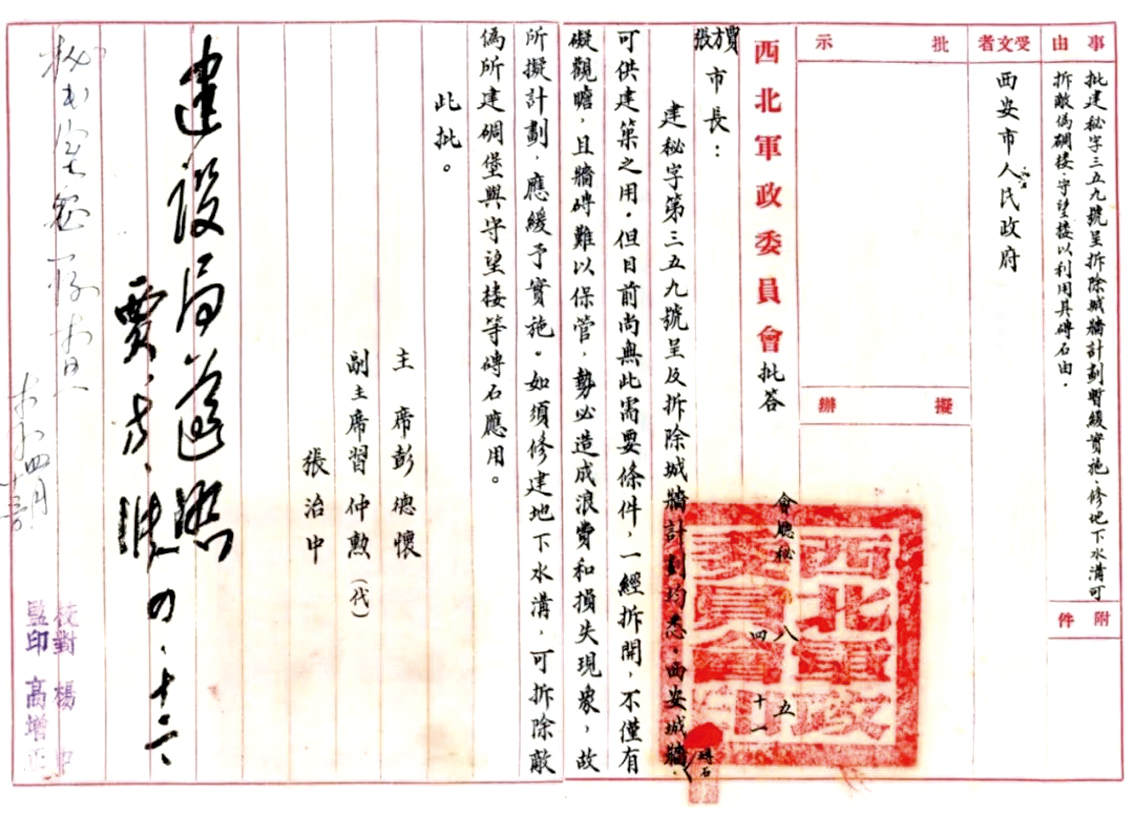 事由
批建秘字三五九號呈拆除城牆計劃暫緩實施、修地下水溝可
拆敵偽碉楼、守望楼以利用其磚石由.
附件
受文者
西安市人民政府
批示
擬辦
西北軍政委員會批答
會廳秘
八五
四十一
西北軍政
委員會印
賈
方
張
市長：
建秘字第三五九號呈及拆除城牆計劃均悉.西安城牆.
磚石
可供建築之用.但目前尚無此需要條件，一經拆開，不僅有
礙觀瞻，且牆磚難以保管，勢必造成浪費和損失現象，故
所擬計劃，應緩予實施。如須修建地下水溝，可拆除敵
偽所建碉堡與守望楼等磚石應用。
此批。
主席彭德懷
副主席習仲勲（代）
張治中
建設局
賈
四月
校對楊
監印高增